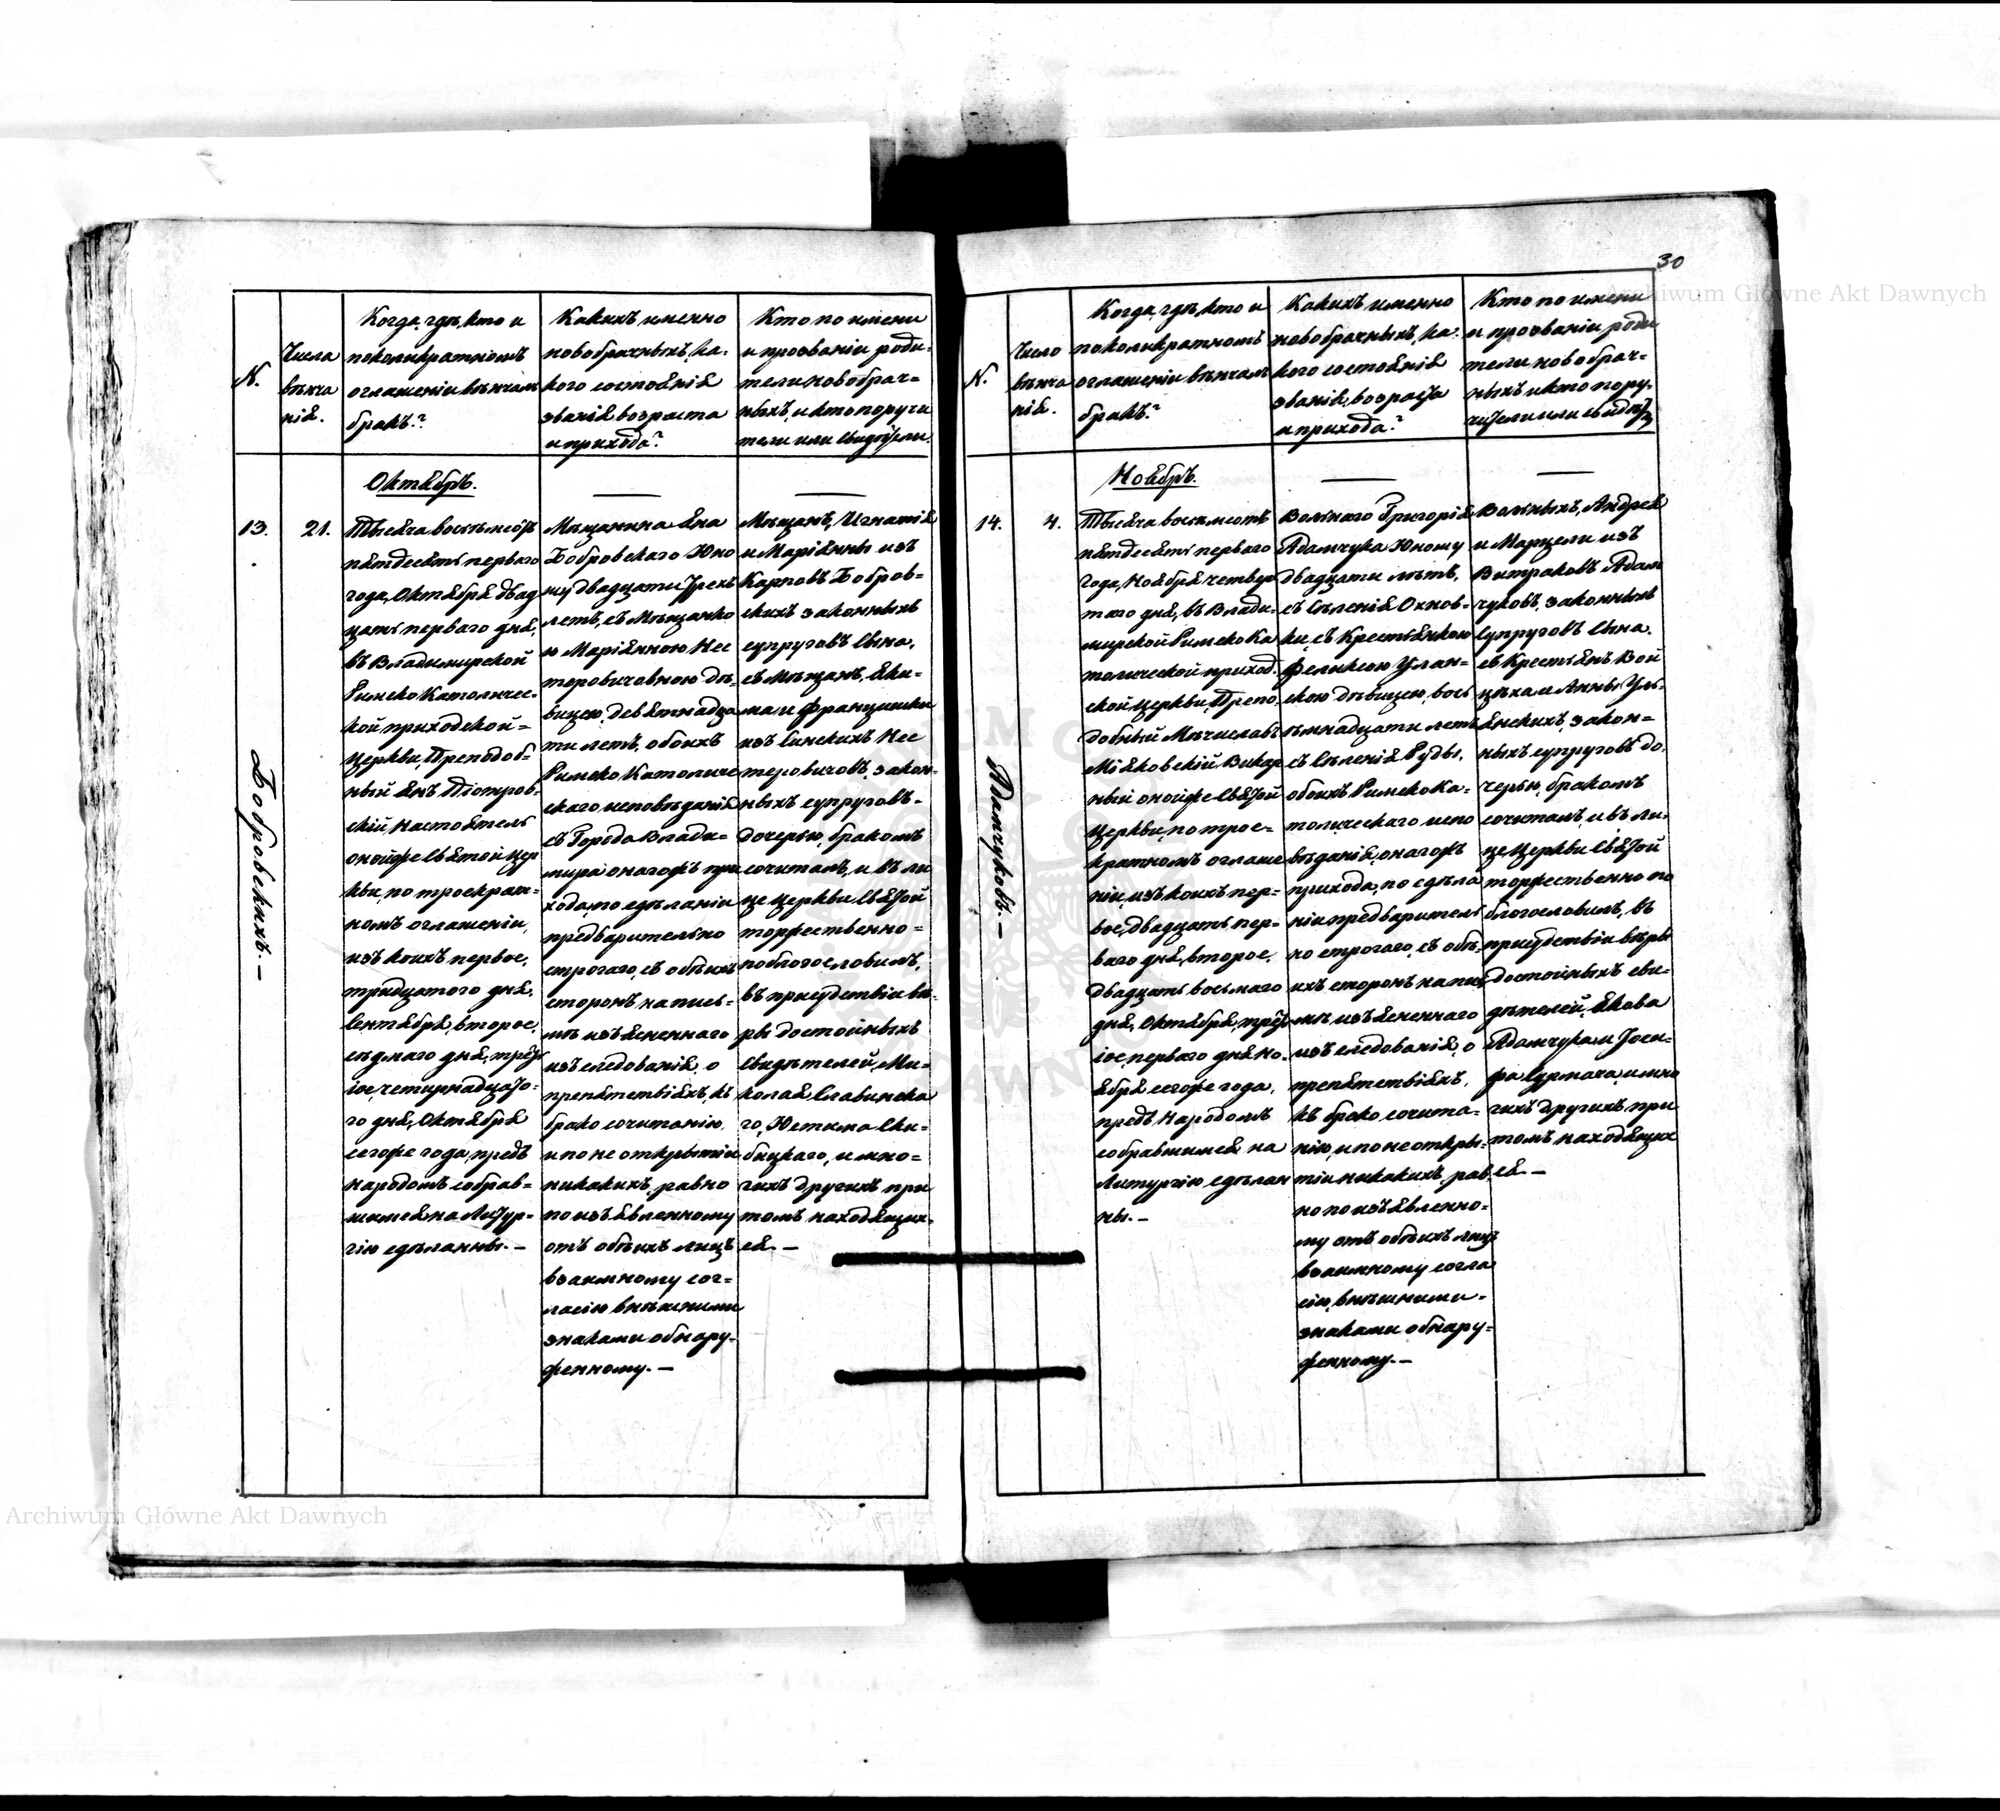 30
Archiwum Główne Akt Dawnych
N.
Числа
вѣнча
нія.
Когда, гдѣ, кто и
поколикратномъ
оглашеніи вѣнчалъ
бракъ?
Какихъ именно
новобрачныхъ, ка-
кого состоянія
званія возраста
и прихода?
Кто по имени
и прозваніи роди-
тели новобрач-
ныхъ, и кто поручи
тели или свидѣтели.
Октябрь.
13.
21.
Бобровскихъ.—
Тысяча восемьсотъ
пятдесятъ перваго
года, Октября двад
цать перваго дня,
въ Владимирской
Римско Католичес-
кой приходской-
Церкви, Преподоб-
ный Янъ Піотров-
скій, Настоятель
онойже Святой Цер
кви, по троекрат-
номъ оглашеніи,
изъ коихъ первое,
тридцатого дня,
Сентября, второе,
седмаго дня, трет
іое, четырнадцато-
го дня, Октября
сегоже года, предъ
народомъ собрав-
шимся на Литур-
гію сдѣланны.—
Мѣщанина Яна
Бобровскаго Юно
шу двадцати трехъ
летъ, съ Мѣщанко
ю Маріянною Нес
теровичовною дѣ-
вицею, девятнадца
ти летъ, обоихъ
Римско Католиче
скаго исповѣданія
съ Города Влади-
мира онагожъ при
хода, по сдѣланіи
предварительно
строгаго, съ обѣихъ
сторонъ на пись-
мѣ изъясненнаго
изъследованія, о
препятствіяхъ, къ
брако сочитанію,
и по не открытіи
никакихъ, равно
по изъявленному
отъ обѣихъ лицъ
взаимному сог-
ласію внѣшними
знаками обнару-
женному.—
Мѣщанъ, Игнатія
и Маріянны изъ
Карповъ Бобров-
скихъ законныхъ
супруговъ сына,
съ Мѣщанъ, Яки-
ма и Францишки
изъ Синскихъ Нес
теровичовъ, закон-
ныхъ супруговъ-
дочерью, бракомъ
сочиталъ, и въ ли
це Церкви Святой
торжественно-
поблогословилъ,
въ присудствіи вѣ-
ры достойныхъ
свидѣтелей, Ми-
колая Славинска
го, Юстима Ски-
бицкаго, и мно-
гихъ другихъ при
томъ находящих-
ся.—
N.
Число
вѣнча
нія.
Когда, гдѣ, кто и
поколикратномъ
оглашеніи вѣнчалъ
бракъ?
Какихъ именно
новобрачныхъ, ка-
кого состоянія
званія, возраста
и прихода?
Кто по имени
и прозваніи роди
тели новобрач-
ныхъ и кто пору-
чители или свидѣт
Archiwum Główne Akt Dawnych
Ноябрь.
14.
4.
Адамчуковъ.—
Тысяча восемьсотъ
пятдесятъ перваго
года, Ноября четвер
таго дня, въ Влади-
мирской Римско Ка
толической приход-
ской Церкви, Препо-
добный Мѣчиславъ
Міяковскій Викар
ный онойже Святой
Церкви, по трое-
кратномъ оглаше
ніи, изъ коихъ пер-
вое, двадцать пер-
ваго дня, второе,
двадцать восьмаго
дня, Октября, трет
іое, перваго дня Но-
ября сегоже года,
предъ Народомъ
собравшимся на
Литургію сдѣлан
ны.—
Вольнаго Григорія
Адамчука Юношу
двадцати летъ,
съ Селенія Охнов-
ки, съ Крестьянкою
Феликсою Улан-
скою дѣвицею, вось
ьмнадцати летъ
съ Селенія Руды,
обоихъ Римско Ка-
толическаго испо
вѣданія, онагожъ
прихода, по сдѣла
ніи предваритель
но строгаго, съ обѣ-
ихъ сторонъ на пис
мѣ изъясненнаго
изъследованія, о
препятствіяхъ,
къ брако сочита-
нію, и по не откры-
тіи никакихъ, рав
но по изъявленно-
му отъ обѣихъ лицъ
взаимному согла
сію, внѣшними-
знаками обнару-
женному.—
Вольныхъ, Андрея
и Марцели изъ
Витраковъ Адам
чуковъ, законныхъ
супруговъ сына,
съ Крестьянъ Вой
цѣха и Анны Уль-
янскихъ, закон-
ныхъ супруговъ до-
черью, бракомъ
сочиталъ, и въ ли-
це Церкви Святой
торжественно по
блогословилъ, въ
присудствіи вѣры
достойныхъ сви-
дѣтелей, Якова
Адамчука и Іоси-
фа Сурмача, и мно
гихъ другихъ при
томъ находящих
ся.—
Archiwum Główne Akt Dawnych